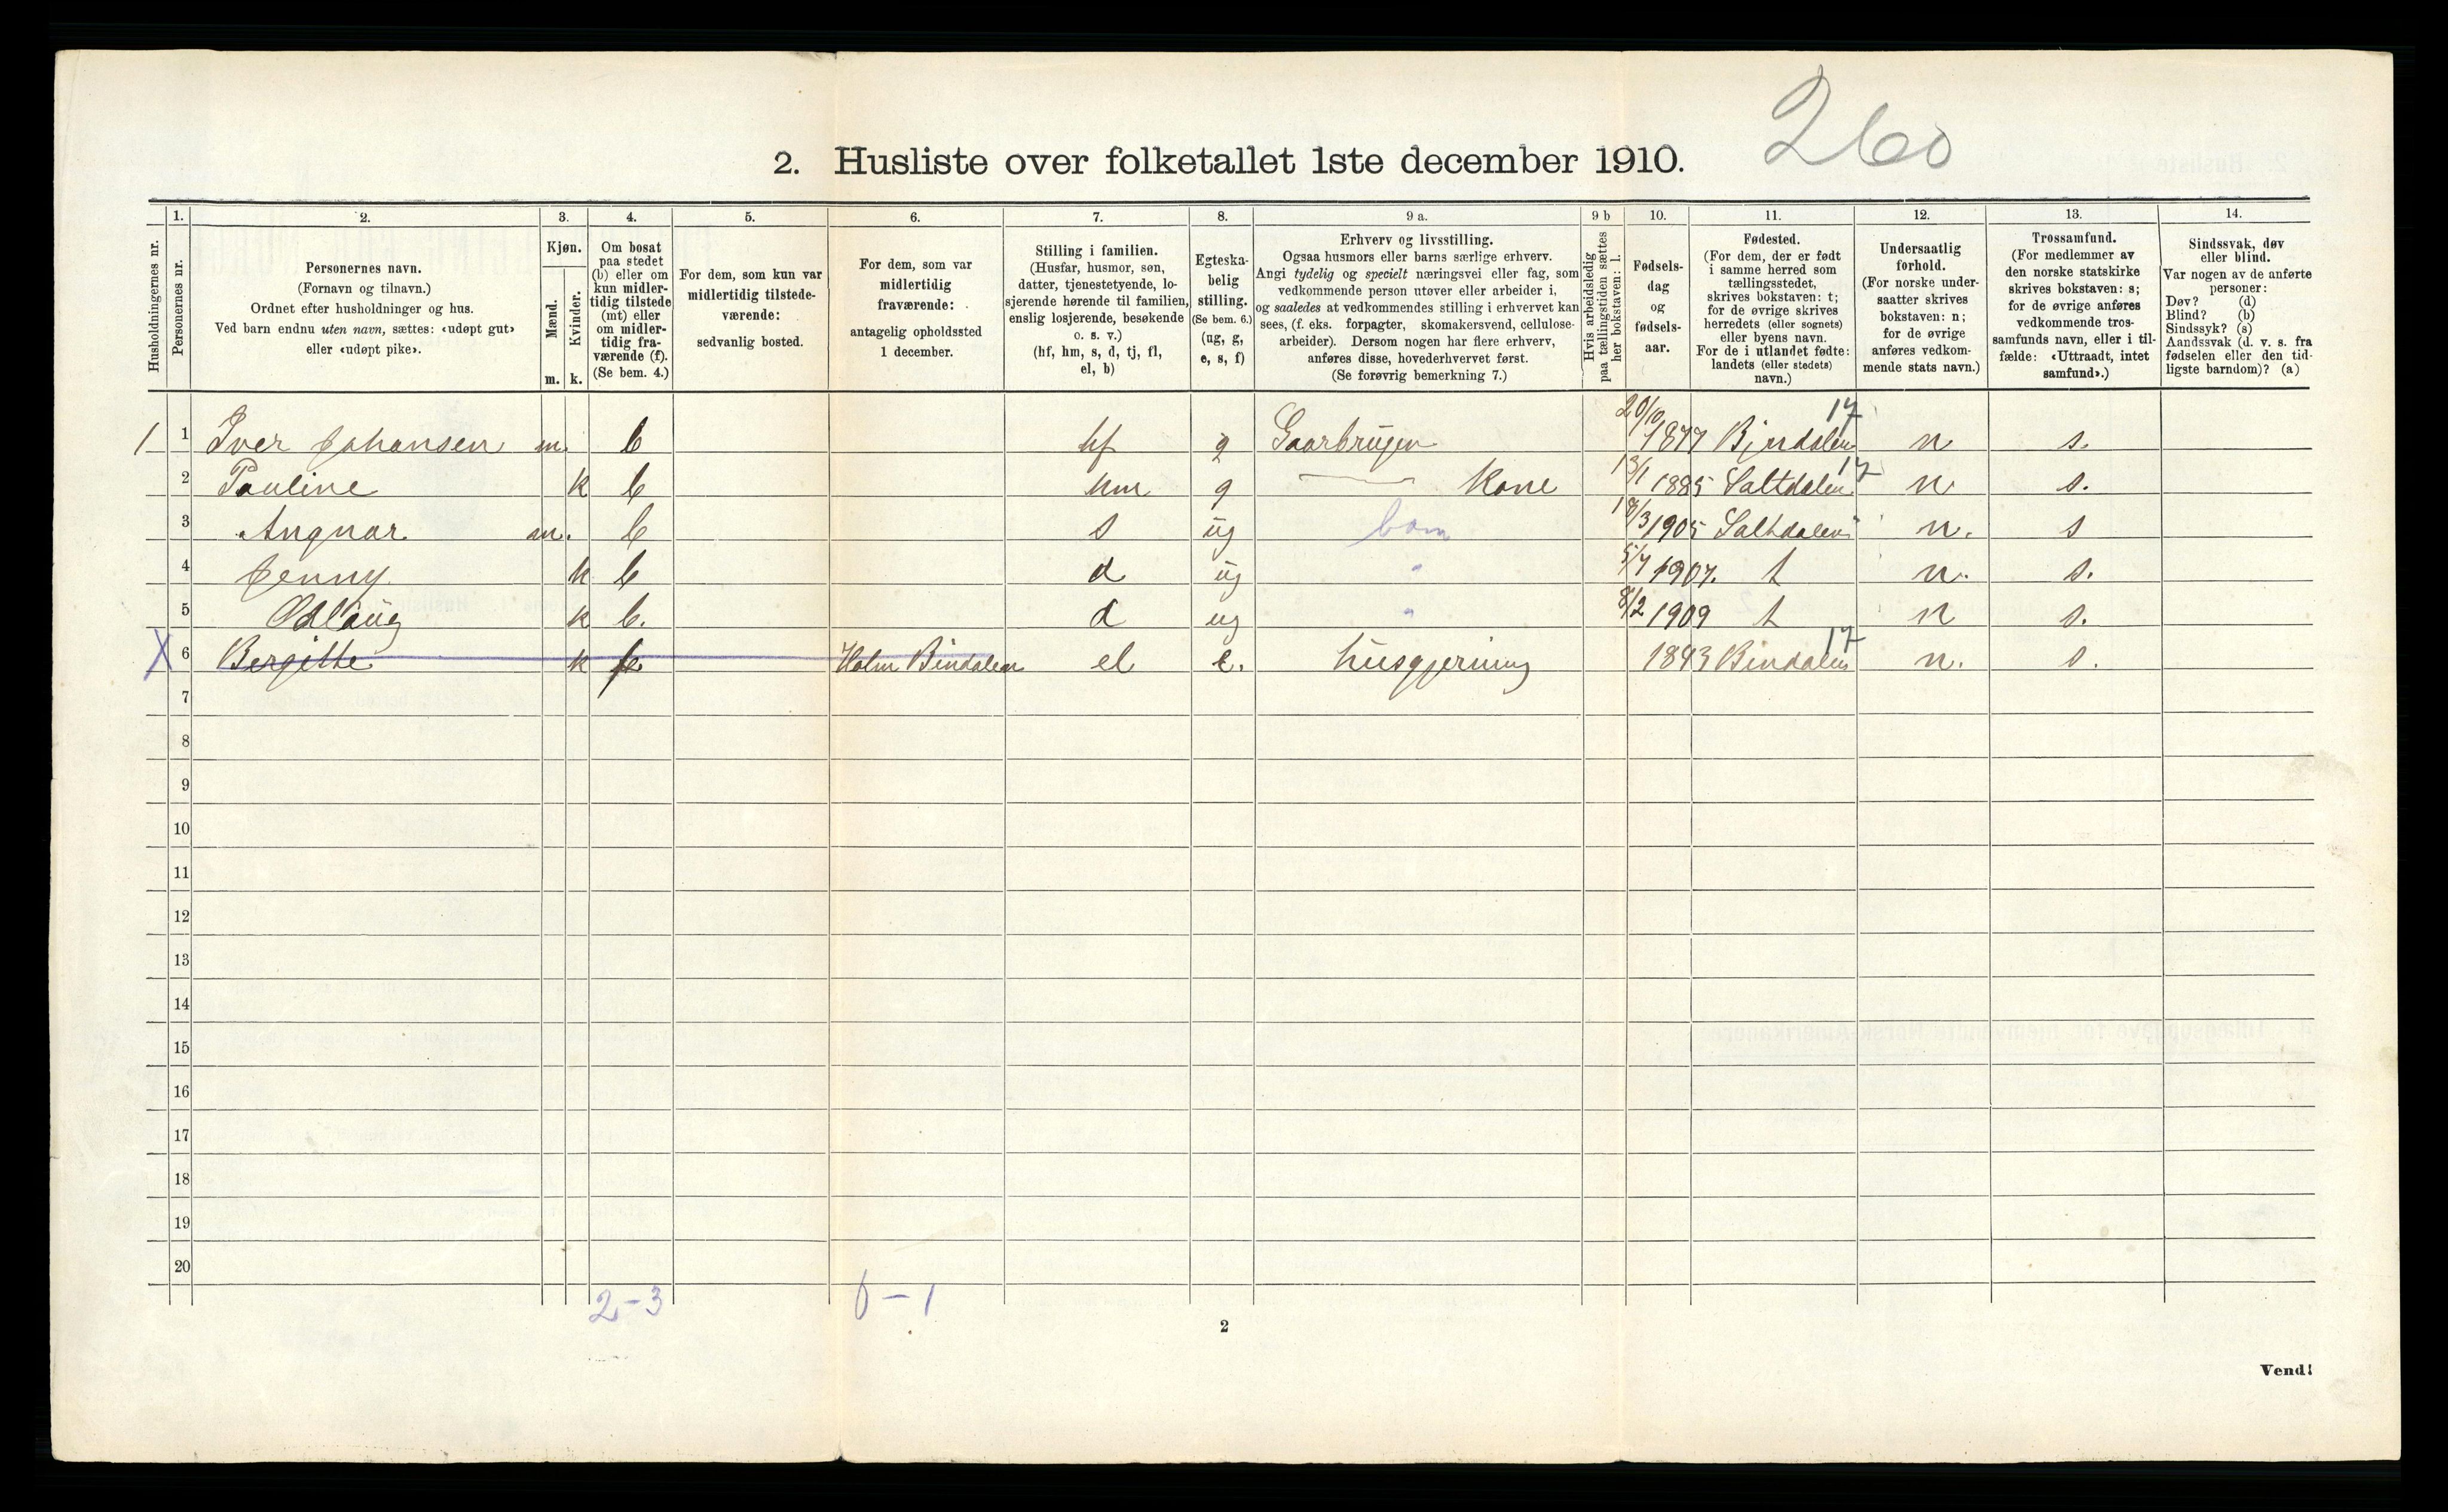 260
2. Husliste over folketallet 1ste december 1910.
Husholdningernes nr.
1.
Personernes nr.
2.
Personernes navn.
(Fornavn og tilnavn.)
Ordnet efter husholdninger og hus.
Ved barn endnu uten navn, sættes: «udøpt gut»
eller «udøpt pike».
3.
Kjøn.
Mænd.
Kvinder.
m. k.
4.
Om bosat
paa stedet
(b) eller om
kun midler-
tidig tilstede
(mt) eller
om midler-
tidig fra-
værende (f).
(Se bem. 4.)
5.
For dem, som kun var
midlertidig tilstede-
værende:
sedvanlig bosted.
6.
For dem, som var
midlertidig
fraværende:
antagelig opholdssted
1 december.
7.
Stilling i familien.
(Husfar, husmor, søn,
datter, tjenestetyende, lo-
sjerende hørende til familien,
enslig losjerende, besøkende
o. s. v.)
(hf, hm, s, d, tj, fl,
el, b)
8.
Egteska-
belig
stilling.
(Se bem. 6.)
(ug, g,
e, s, f)
9 a.
Erhverv og livsstilling.
Ogsaa husmors eller barns særlige erhverv.
Angi tydelig og specielt næringsvei eller fag, som
vedkommende person utøver eller arbeider i,
og saaledes at vedkommendes stilling i erhvervet kan
sees, (f. eks. forpagter, skomakersvend, cellulose-
arbeider). Dersom nogen har flere erhverv,
anføres disse, hovederhvervet først.
(Se forøvrig bemerkning 7.)
9 b
Hvis arbeidsledig
paa tællingstiden sættes
her bokstaven: l.
10.
Fødsels-
dag
og
fødsels-
aar.
11.
Fødested.
(For dem, der er født
i samme herred som
tællingsstedet,
skrives bokstaven: t;
for de øvrige skrives
herredets (eller sognets)
eller byens navn.
For de i utlandet fødte:
landets (eller stedets)
navn.)
12.
Undersaatlig
forhold.
(For norske under-
saatter skrives
bokstaven: n;
for de øvrige
anføres vedkom-
mende stats navn.)
13.
Trossamfund.
(For medlemmer av
den norske statskirke
skrives bokstaven: s;
for de øvrige anføres
vedkommende tros-
samfunds navn, eller i til-
fælde: «Uttraadt, intet
samfund».)
14.
Sindssvak, døv
eller blind.
Var nogen av de anførte
personer:
Døv? (d)
Blind? (b)
Sindssyk? (s)
Aandssvak (d. v. s. fra
fødselen eller den tid-
ligste barndom)? (a)
1 1 Iver Johansen m. b hf g Gaarbruger 20/10 1877 Bjndalen 17 n s.
2 Pauline k b hm g — Kone 13/1 1885 Saltdalen 17 n s.
3 Angnar. m. b s ug barn 18/3 1905 Saltdalen " n. s
4 Jenny k b d ug " 5/7 1907. t n. s.
5 Odlaug k b. d ug " 8/2 1909 t n s.
X 6 Bergitte k f Holm Bindalen el e. husgjerning 1843 Bindalen 17 n. s.
7
8
9
10
11
12
13
14
15
16
17
18
19
20
2-3 0-1
2
Vend!